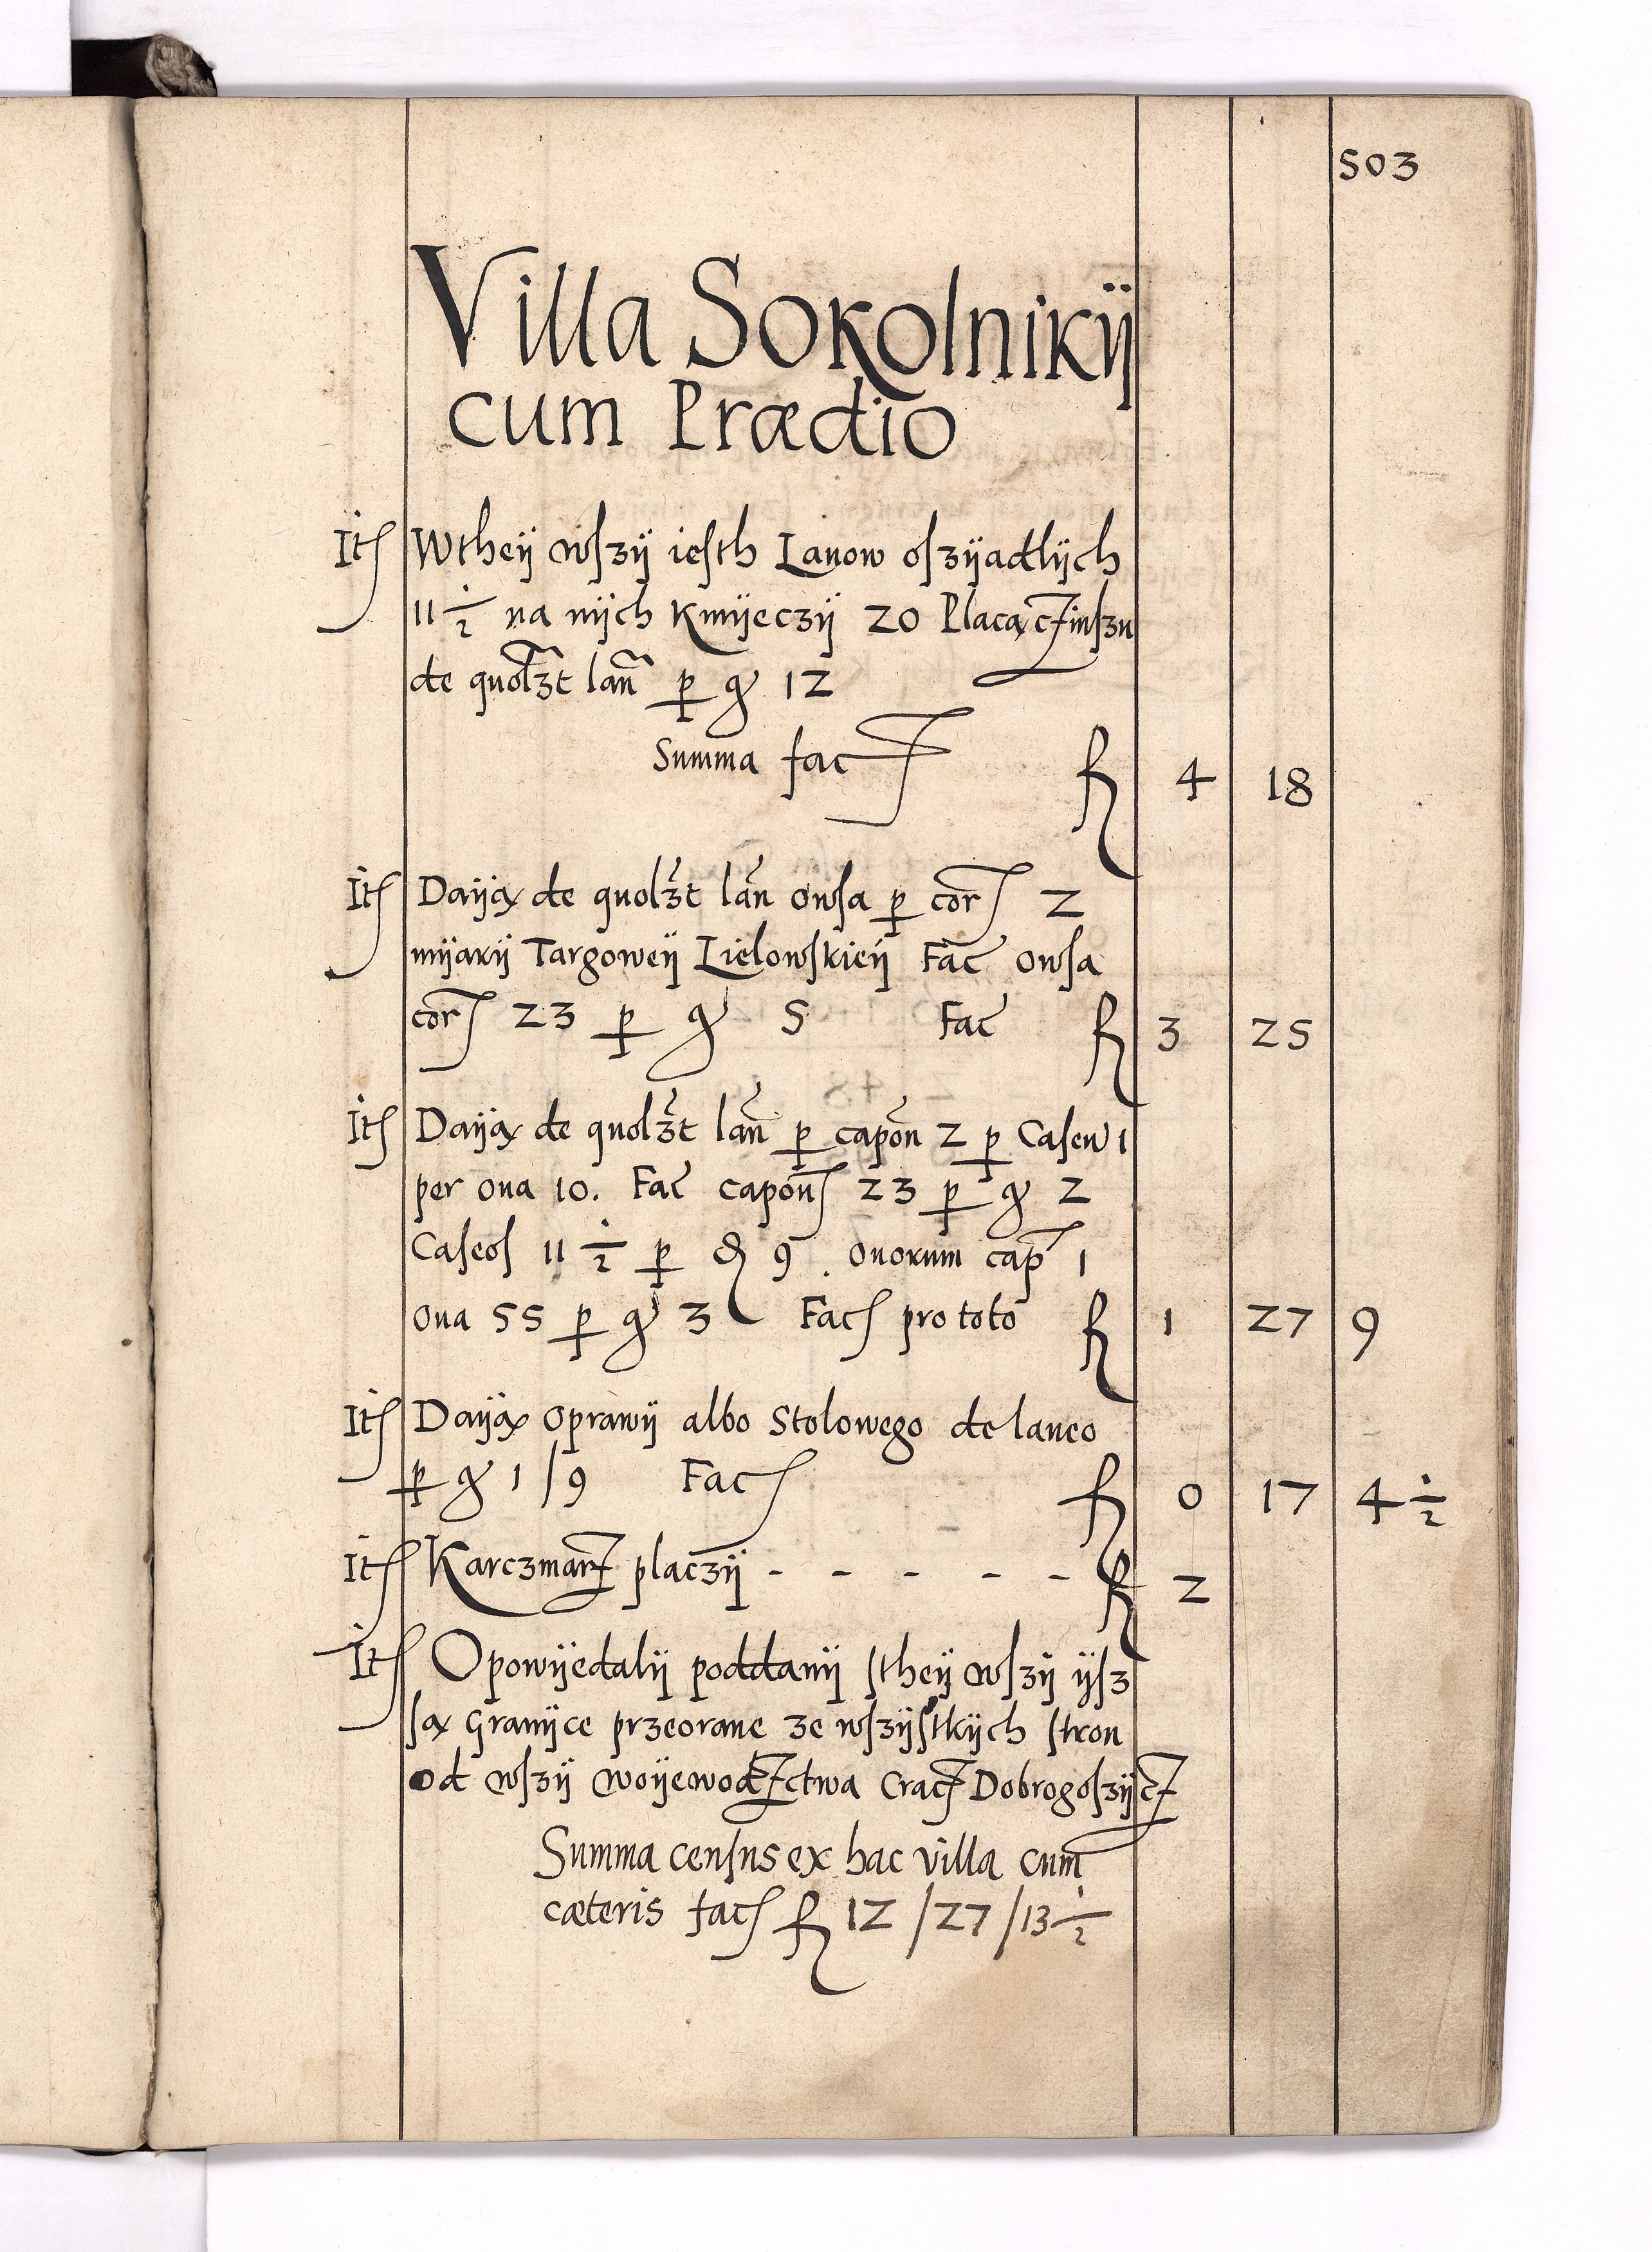 503
Villa Sokolnikÿ
cum Prædio
Itſ Wtheÿ wſzÿ ieſth Lanow oſzÿadlÿch
11 1/2 na nÿch Kmÿeczÿ 20 Placą cżinſzu
de quolꝫt lañ ꝑ gͬ 12
Summa fac fl 4 18
Itſ Daÿą de quolꝫt lañ owſa ꝑ corſ 2
mÿarÿ Targoweÿ Lielowſkieÿ Fac owſa
corſ 23 ꝑ gͬ 5 Fac fl 3 25
Itſ Daÿą de quolꝫt lañ ꝑ capōn 2 ꝑ Caſeū 1
per oua 10. Fac capōnſ 23 ꝑ gͬ 2
Caſeoſ 11 1/2 ꝑ ₰ 9. ouorum cap 1
oua 55 ꝑ gͬ 3 Facſ pro toto fl 1 27 9
Itſ Daÿą Oprawÿ albo Stolowego de laneo
ꝑ gͬ 1/9 Facſ fl 0 17 4 1/2
Itſ Karczmarż placzÿ - - - - - fl 2
Itſ Opowÿedalÿ poddanÿ ſtheÿ wſzÿ ÿſz
ſą Granÿce przeorane ze wſzÿſtkÿch ſtron
od wſzÿ woÿewodżctwa Crac Dobrogoſzÿcż
Summa cenſus ex hac villa cum
cæteris facſ fl 12/27/13 1/2